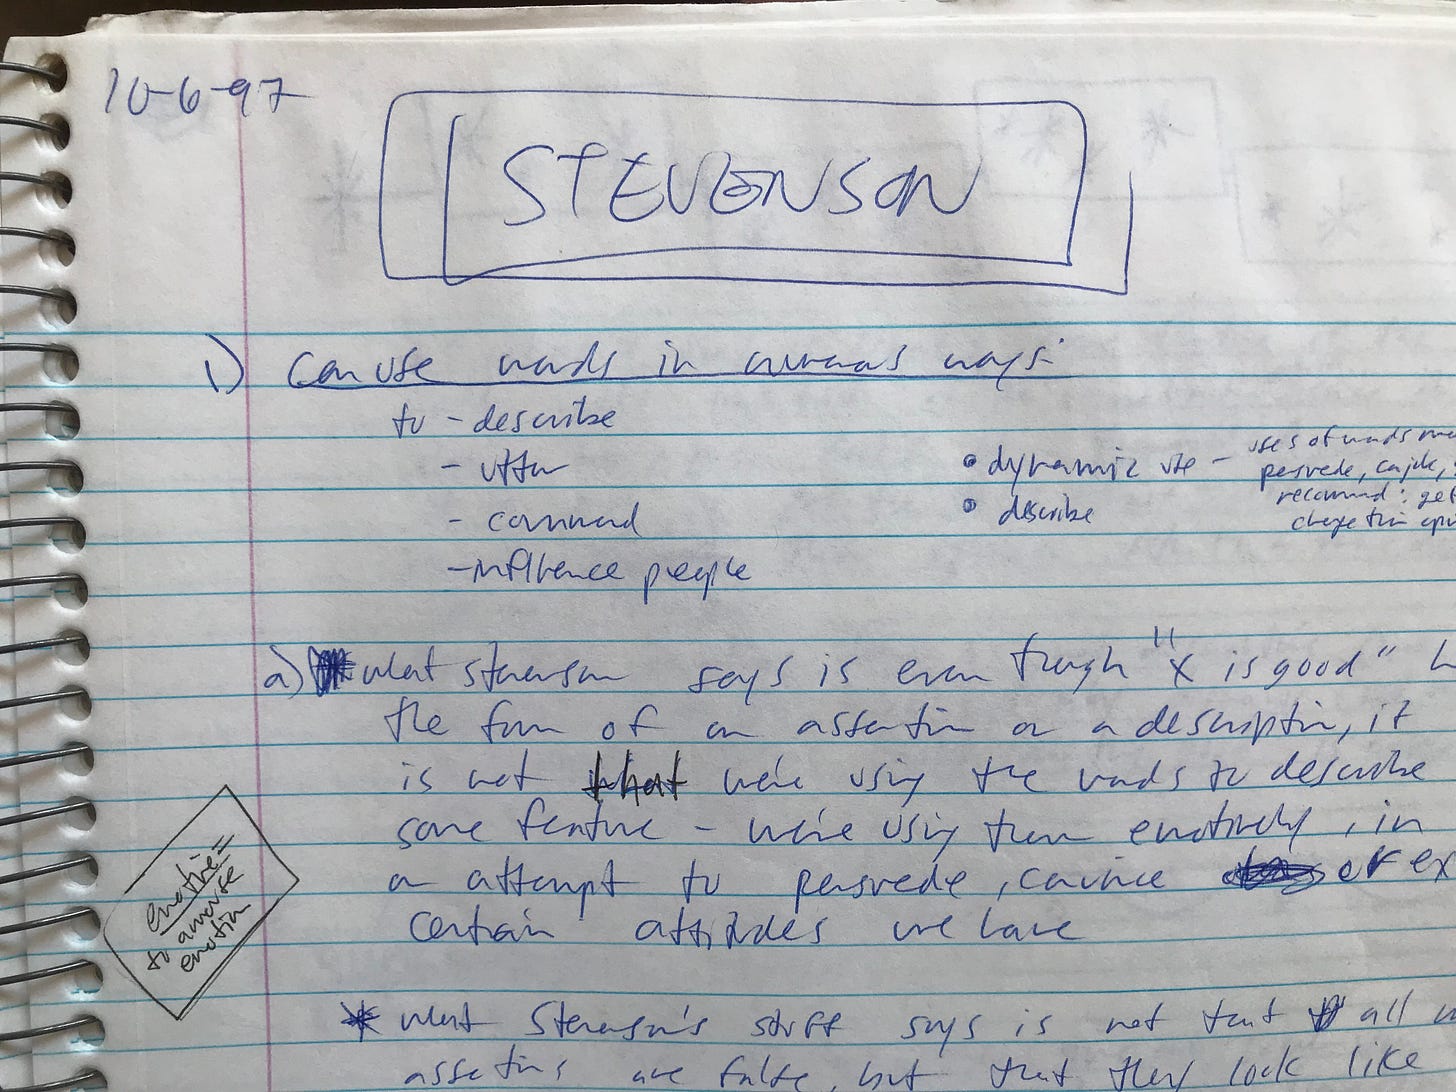 10-6-97
STEVENSON
1) Can use words in numerous ways:
to - describe
- utter
- command
- influence people
• dynamic use - uses of words
persuade, cajole,
recommend: get
change their
• describe
a) what Stevenson says is even though "X is good"
the form of an assertion or a description, it
is not that we're using the words to describe
some feature - we're using them emotively, in
an attempt to persuade, convince or ex
certain attitudes we have
emotive =
to arouse
emotion
* what Stevenson's stuff says is not that all
assertions are false, but that they look like